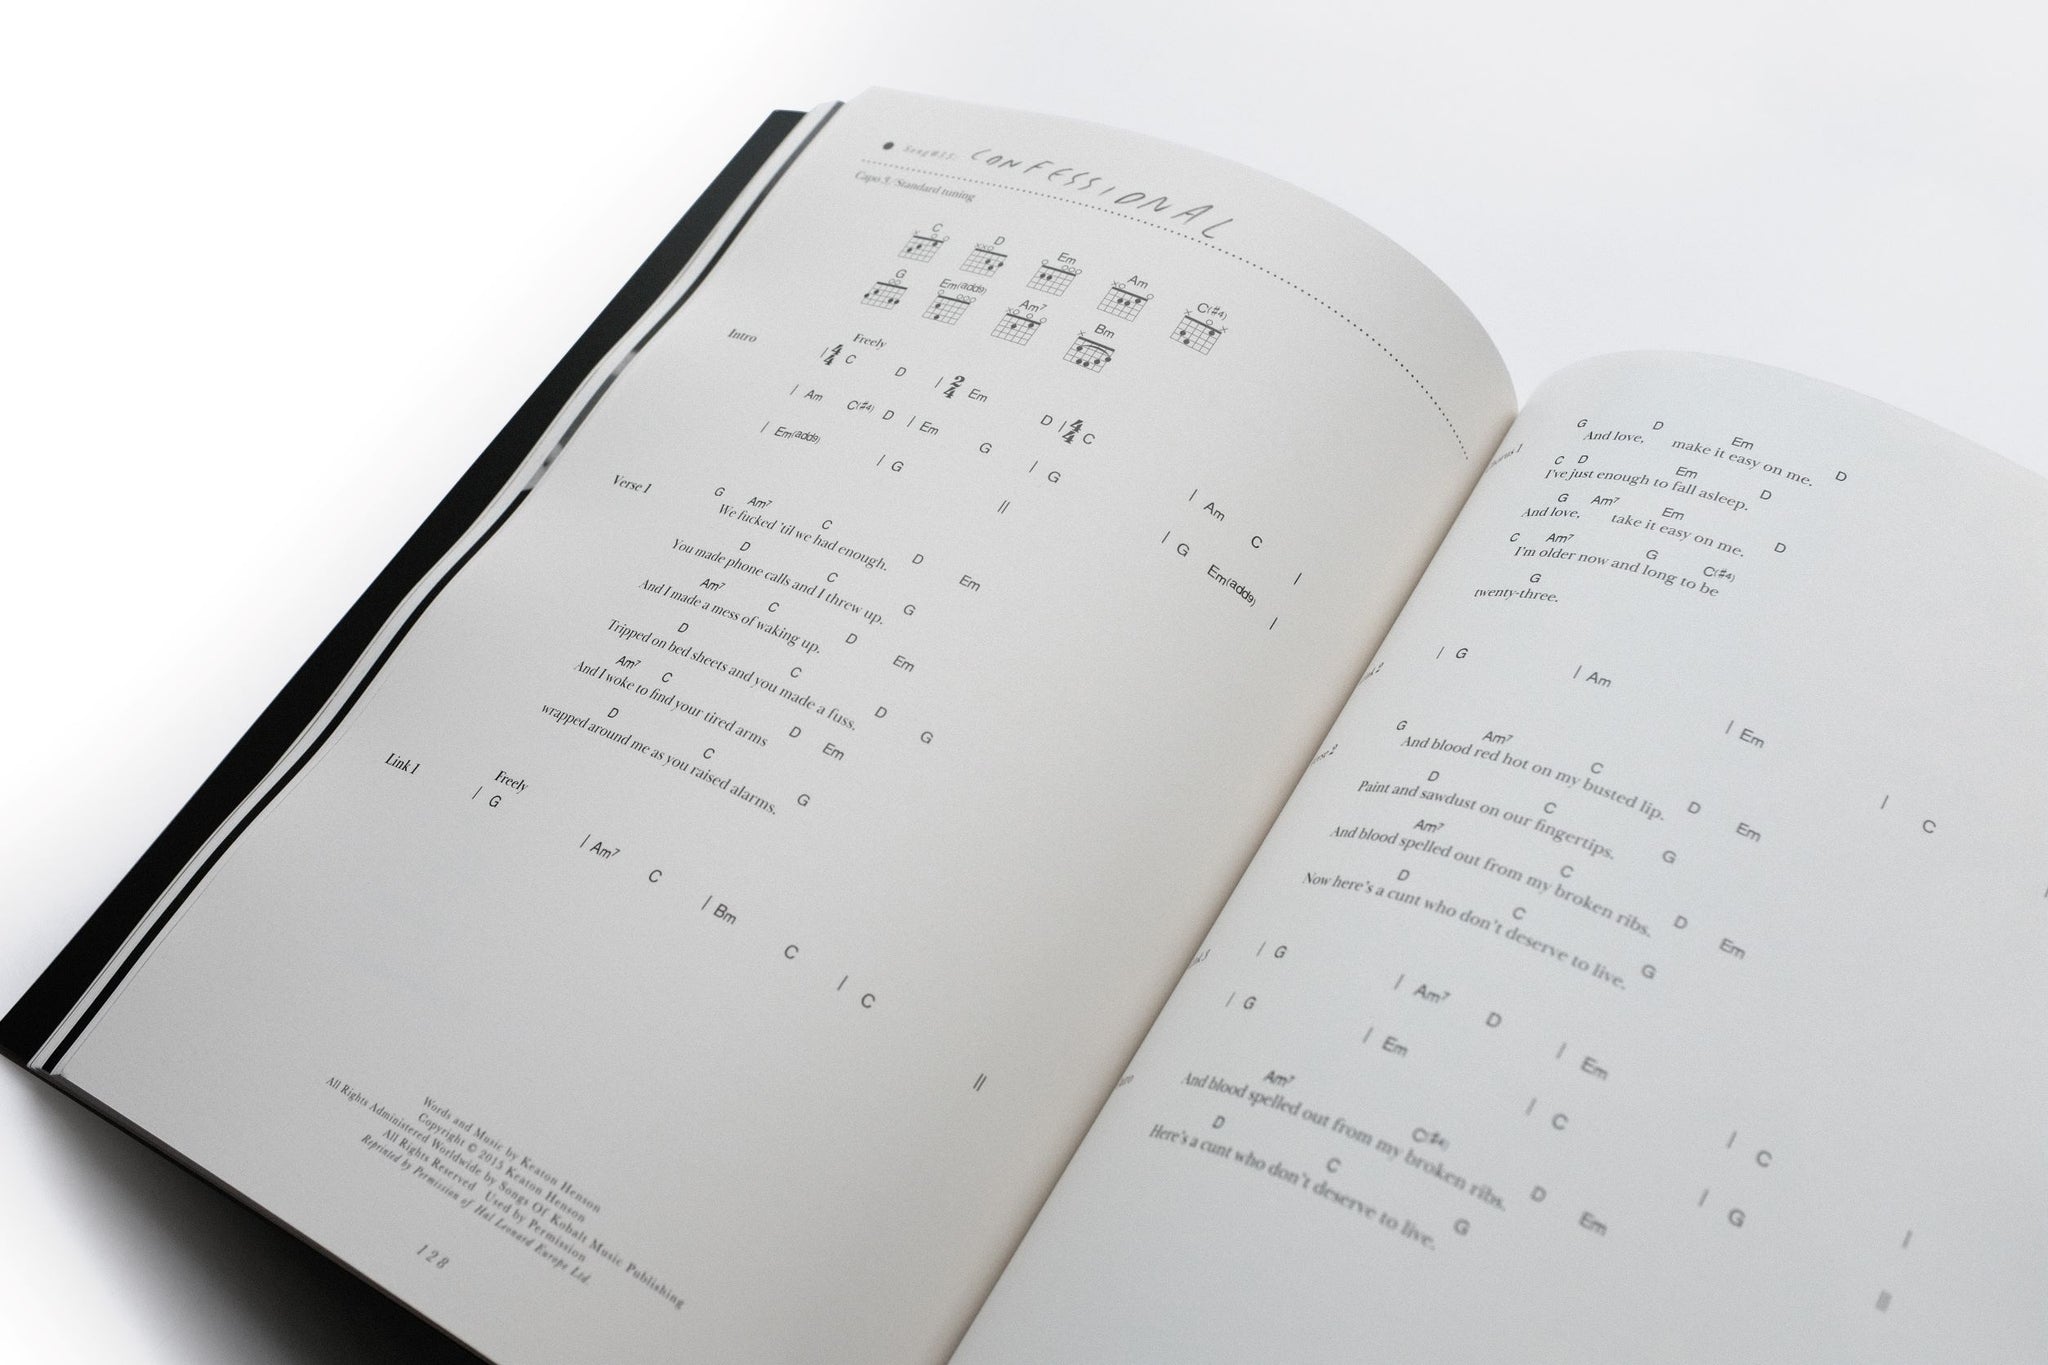 Song#35: CONFESSIONAL
Capo 3/Standard tuning
C D Em Am C(#4)
G Em(add9) Am7 Bm
Intro
Freely
| 4/4 C D | 2/4 Em D | 4/4 C
| Am C(#4) D | Em G | G | Am C |
| Em(add9) | G || | G Em(add9) |
Verse 1
G Am7 C D Em
We fucked 'til we had enough.
D C G
You made phone calls and I threw up.
Am7 C D Em
And I made a mess of waking up.
D C D G
Tripped on bed sheets and you made a fuss.
Am7 C D Em
And I woke to find your tired arms
D C G
wrapped around me as you raised alarms.
Link 1
Freely
| G | Am7 C | Bm C | C ||
Words and Music by Keaton Henson
Copyright © 2015 Keaton Henson
All Rights Administered Worldwide by Songs Of Kobalt Music Publishing
All Rights Reserved Used by Permission
Reprinted by Permission of Hal Leonard Europe Ltd.
128
G D Em D
And love, make it easy on me.
C D Em D
I've just enough to fall asleep.
G Am7 Em D
And love, take it easy on me.
C Am7 G C(#4)
I'm older now and long to be
G
twenty-three.
| G | Am | Em | C
G Am7 C D Em
And blood red hot on my busted lip.
D C G
Paint and sawdust on our fingertips.
Am7 C D Em
And blood spelled out from my broken ribs.
D C G
Now here's a cunt who don't deserve to live.
| G | Am7 D | Em | C
| G | Em | C | G |
Am7 C(#4) D Em
And blood spelled out from my broken ribs.
D C G
Here's a cunt who don't deserve to live.